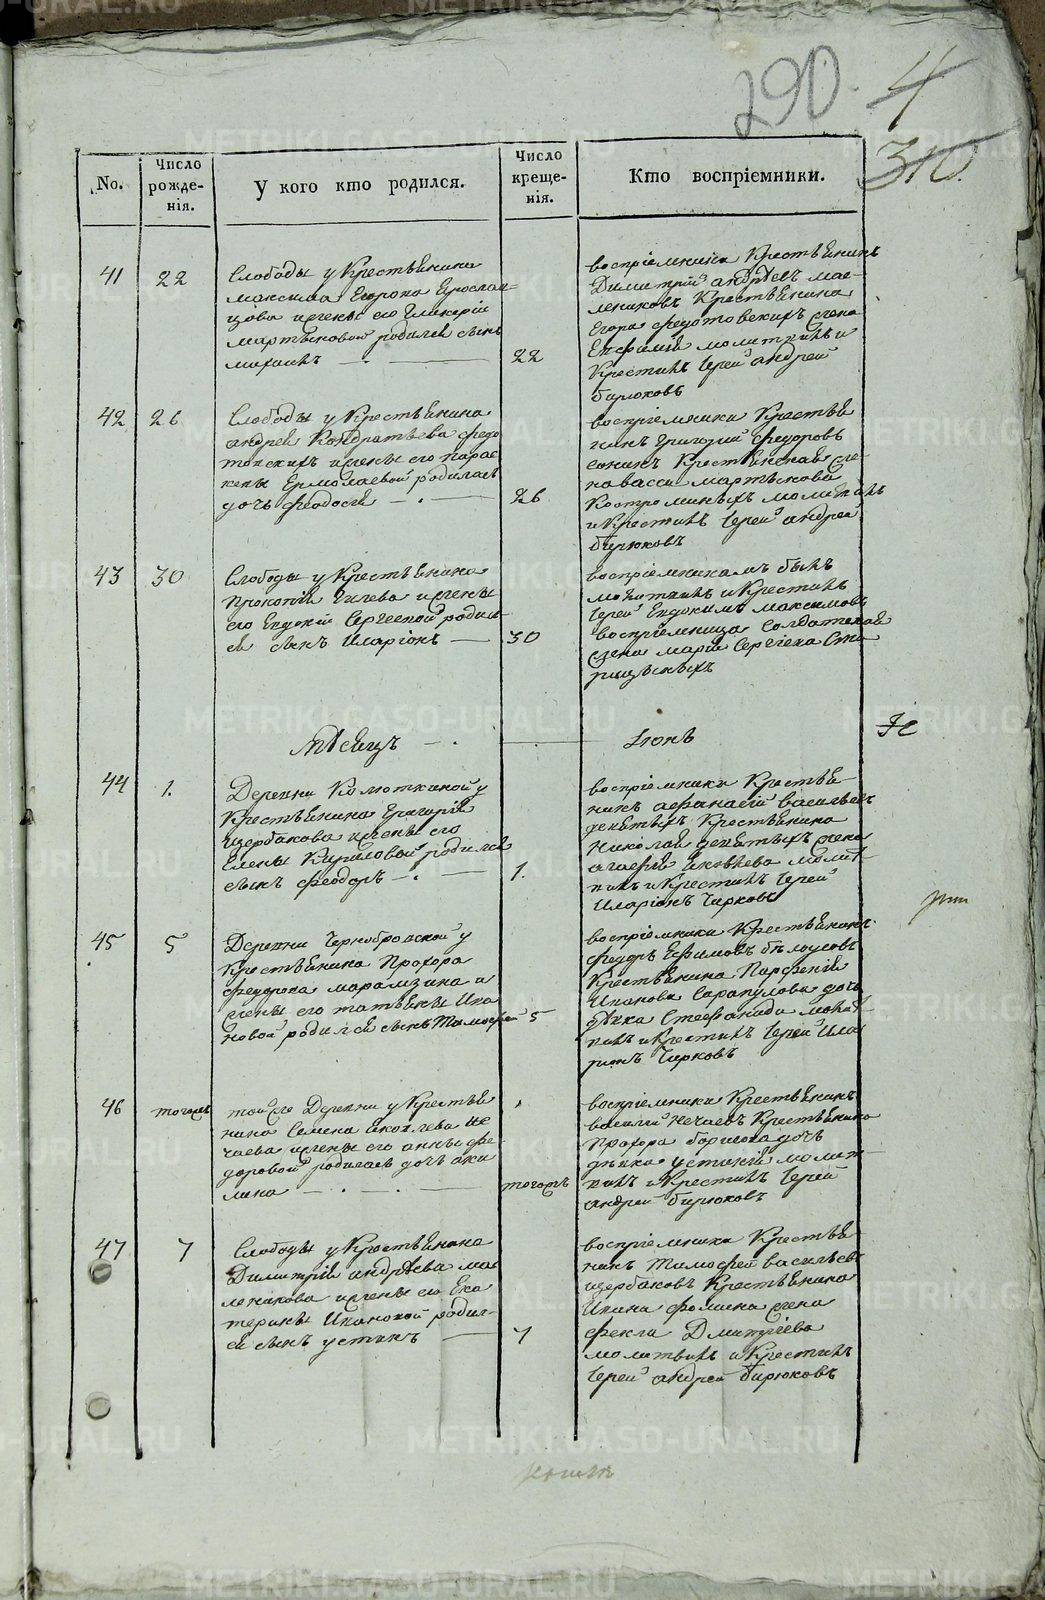 290.
4
310.
No.
Число
рожде-
нія.
У кого кто родился.
Число
креще-
нія.
Кто воспріемники.
41
22
Слободы у Крестьянина
максима Егорова Ерослав-
цова и жены его Гликерїи
мартыновой родился сынъ
михаилъ
22
воспрїемники Крестьянинъ
Димитрїй андрѣевъ мас-
лениковъ Крестьянина
Егора федотовскихъ жена
Евфимїя молитвилъ и
Крестилъ Іерей андрей
бирюковъ
42
26
Слободы у Крестьянина
андрея Кондратьева федо
товскихъ и жены его парас
кевы Ермолаевой родилась
дочь феодосїя
26
воспрїемники Крестья
нинъ Григорїй Федоровъ
Крестьянская же
на васса мартынова
Костроминыхъ молитвилъ
и Крестилъ Іерей андрей
бирюковъ
43
30
Слободы у Крестьянина
Прокопїя Гилева и жены
его Евдокїи Сергеевой родил-
ся сынъ Иларїонъ
30
воспрїемникамъ былъ
молитвилъ и Крестилъ
Іерей Евдокимъ максимовъ
воспрїемница солдатская
жена марїя Сергїева
Мѣсяцъ
Іюнь
44
1.
Деревни Колюткиной у
Крестьянина Григорїя
щербакова и жены его
Елены Кириловой родился
сынъ феодоръ
1.
воспрїемники Крестья-
нинъ афанасїй васильевъ
девятыхъ Крестьянина
Николая девятыхъ жена
агафїя яковлева молит-
вилъ и Крестилъ Іерей
Иларїонъ Чирковъ
45
5
Деревни Чернобровской у
Крестьянина Прохора
федорова марамзина и
жены его татьяны Ива
новой родился сынъ Тимофей
5
воспрїемники Крестьянинъ
федоръ Ефимовъ бѣлоусовъ
Крестьянина Парфенїя
Иванова Сарапулова дочь
дѣвка Стефанида молит-
вилъ и Крестилъ Іерей Ила
рїонъ Чирковъ
46
тогожъ
той же Деревни у Крестья
нина Семена яковлева не
чаева и жены его анны фе
доровой родилась дочь аки
лина
тогожъ
воспрїемники Крестьянинъ
василїй нечаевъ Крестьянина
Прохора борисова дочь
дѣвка устинїя молит-
вилъ и Крестилъ Іерей
андрей бирюковъ
47
7
Слободы у Крестьянина
Димитрїя андрѣева мас
леникова и жены его Ека
терины Ивановой родил-
ся сынъ устинъ
7
воспрїемники Крестья
нинъ Тимофей васильевъ
щербаковъ Крестьянина
Ивана фомина жена
фекла Дмитрїева
молитвилъ и Крестилъ
Іерей андрей бирюковъ
METRIKI.GASO-URAL.RU